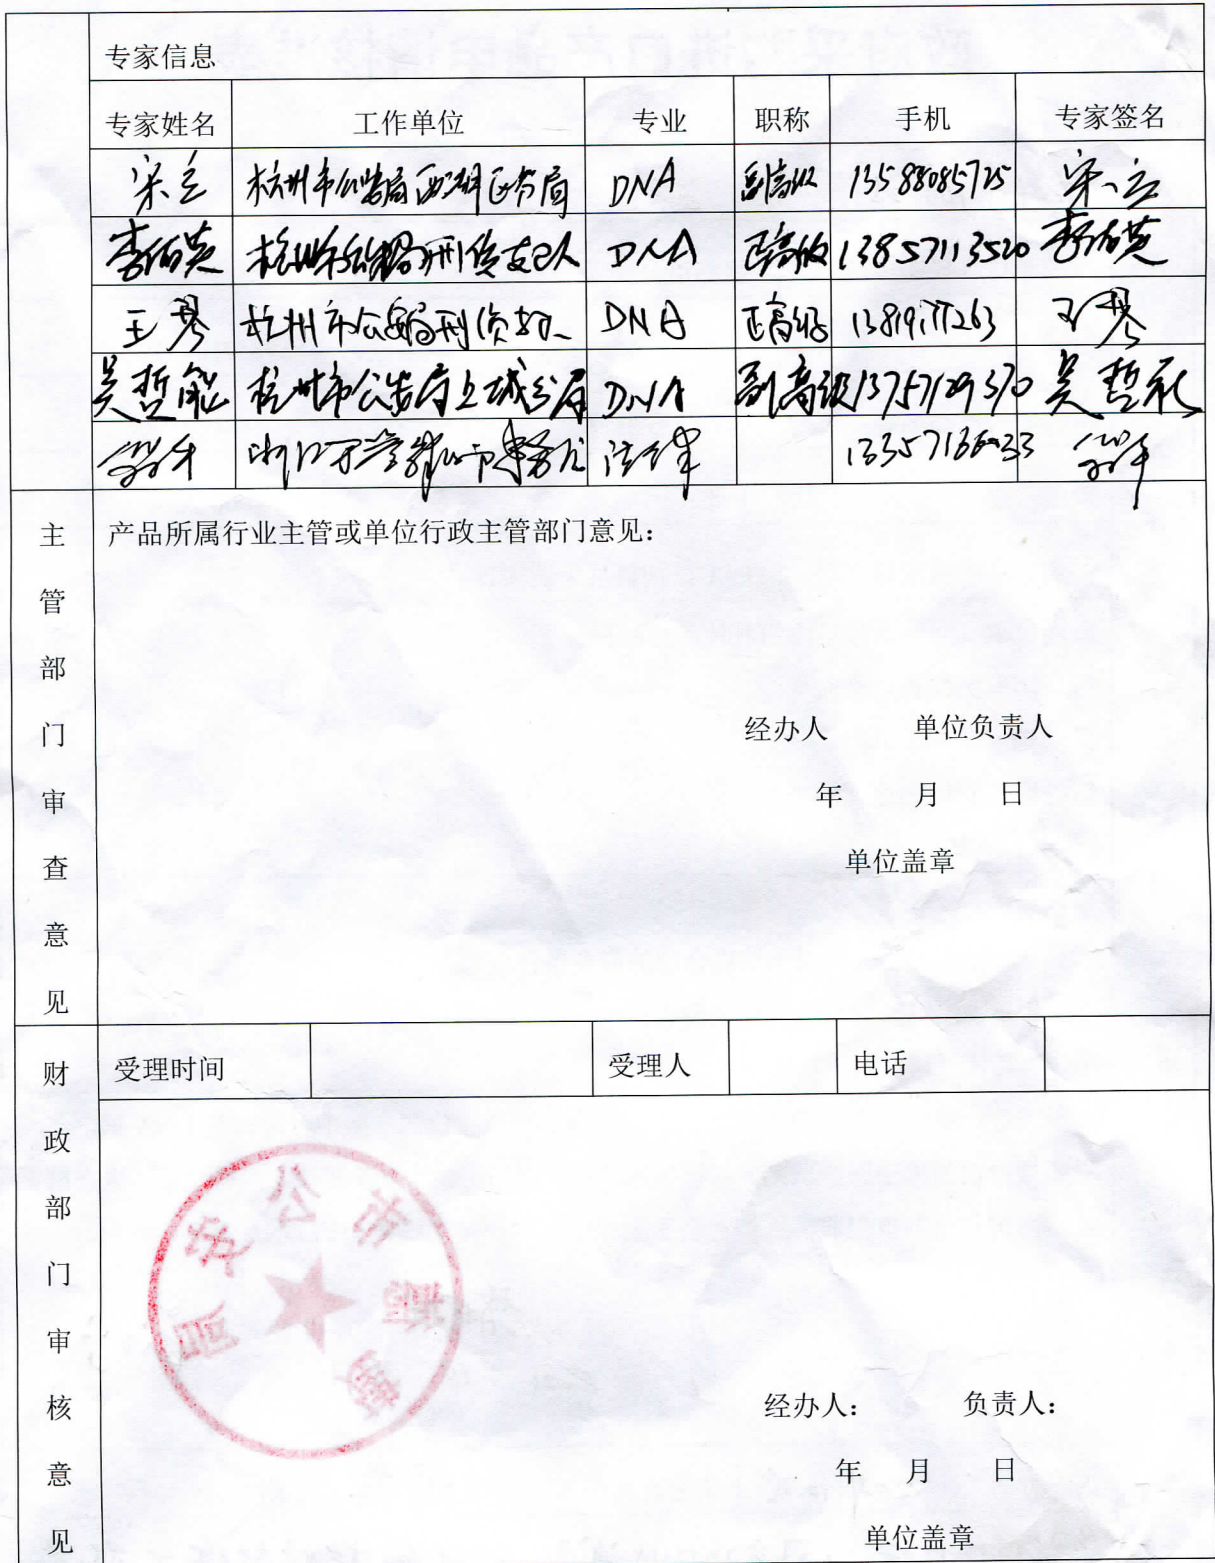 专家信息
专家姓名 工作单位 专业 职称 手机 专家签名
宋立 杭州市公安局西湖区分局 DNA 副高级 13588085725 宋立
李佑英 杭州市公安局刑侦支队 DNA 正高级 13857113520 李佑英
王琴 杭州市公安局刑侦支队 DNA 正高级 王琴
吴哲 杭州市公安局上城分局 DNA 副高级 13757129370 吴哲
法律
主管部门审查意见
产品所属行业主管或单位行政主管部门意见：
经办人 单位负责人
年 月 日
单位盖章
财政部门审核意见
受理时间 受理人 电话
市公安局
经办人： 负责人：
年 月 日
单位盖章